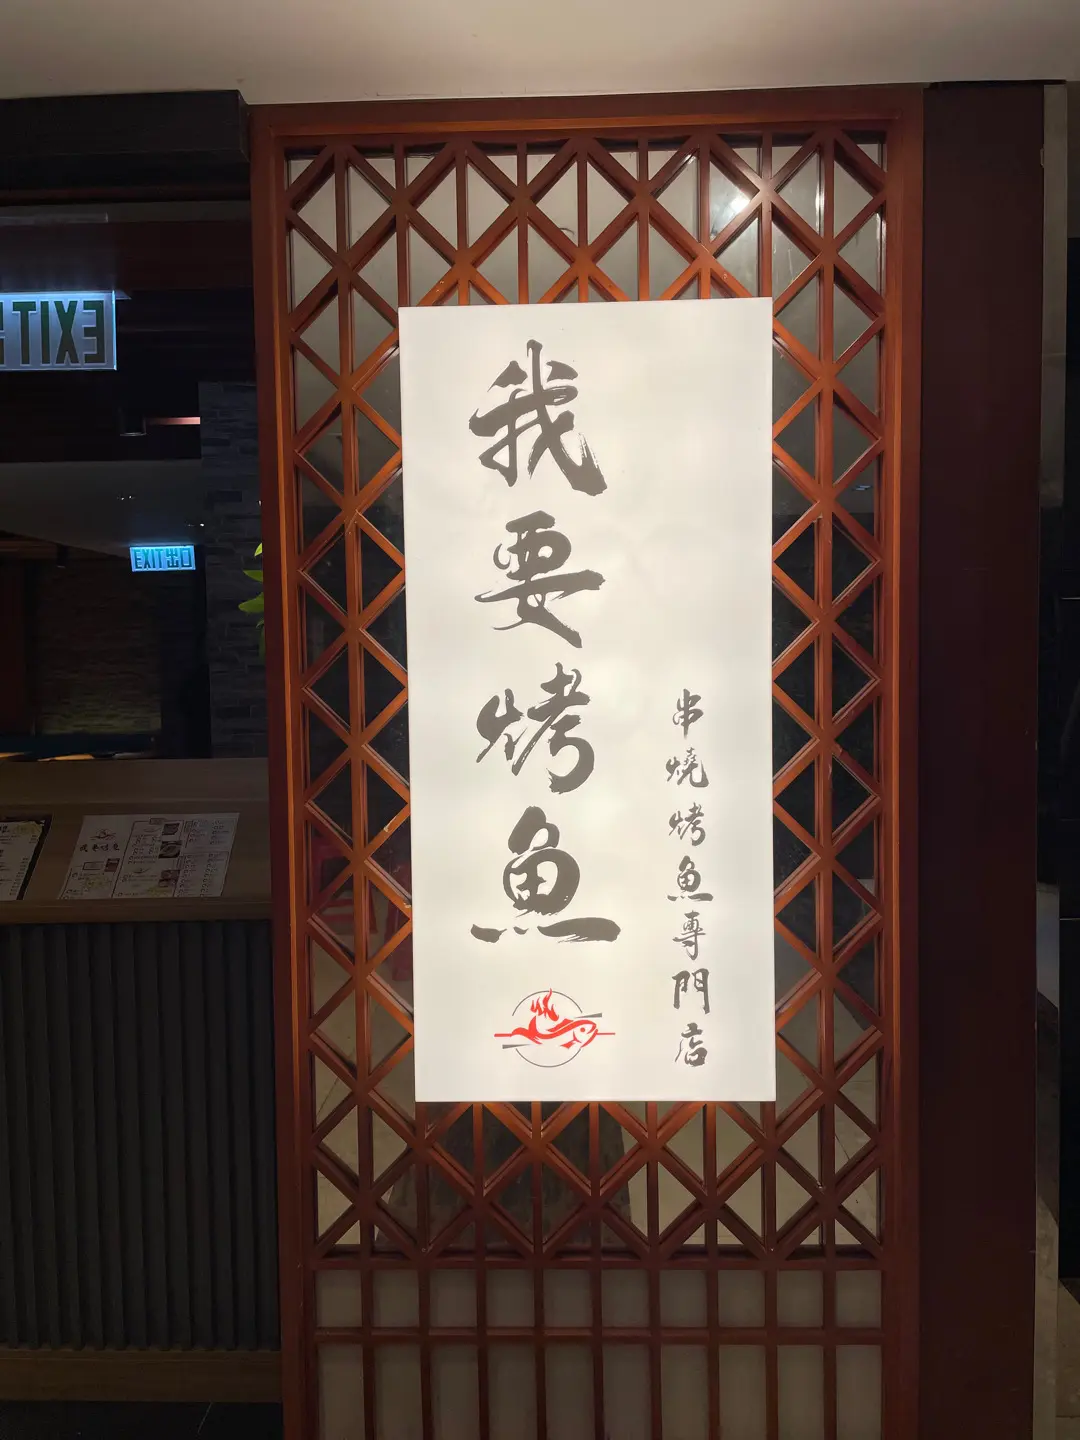 我要烤魚
串燒烤魚專門店
EXIT
EXIT出口
我要烤魚